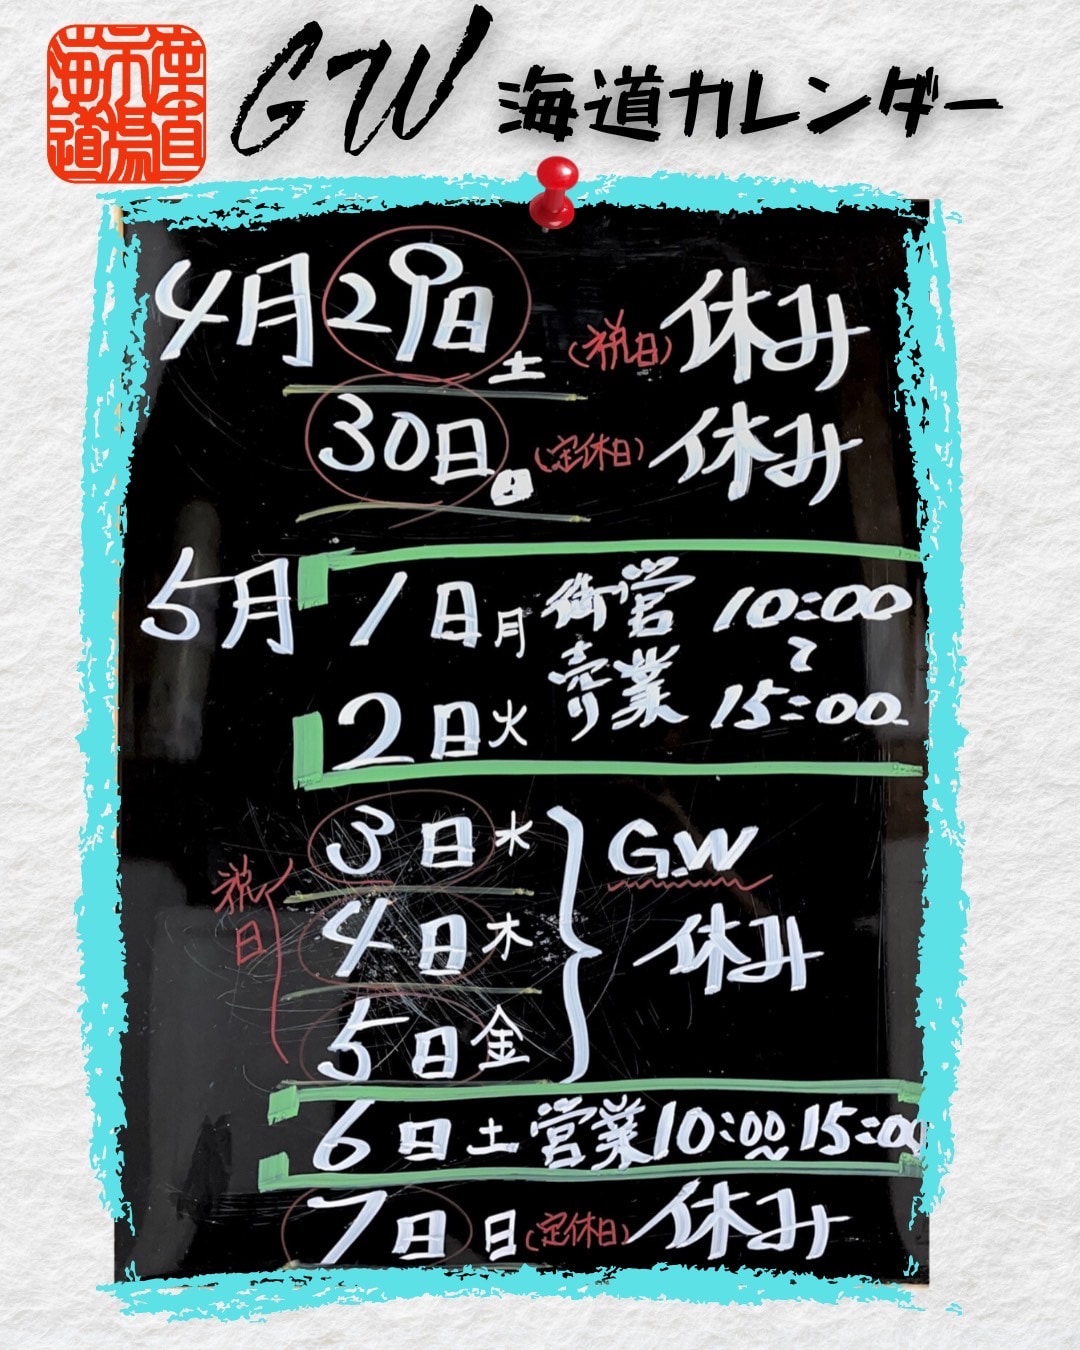 産直
市場
海道
GW 海道カレンダー
4月29日土(祝日)休み
30日日(定休日)休み
5月
1日月
2日火
御売り
営業
10:00
〜
15:00
祝日
3日水
4日木
5日金
G.W
休み
6日土営業10:00〜15:00
7日日(定休日)休み